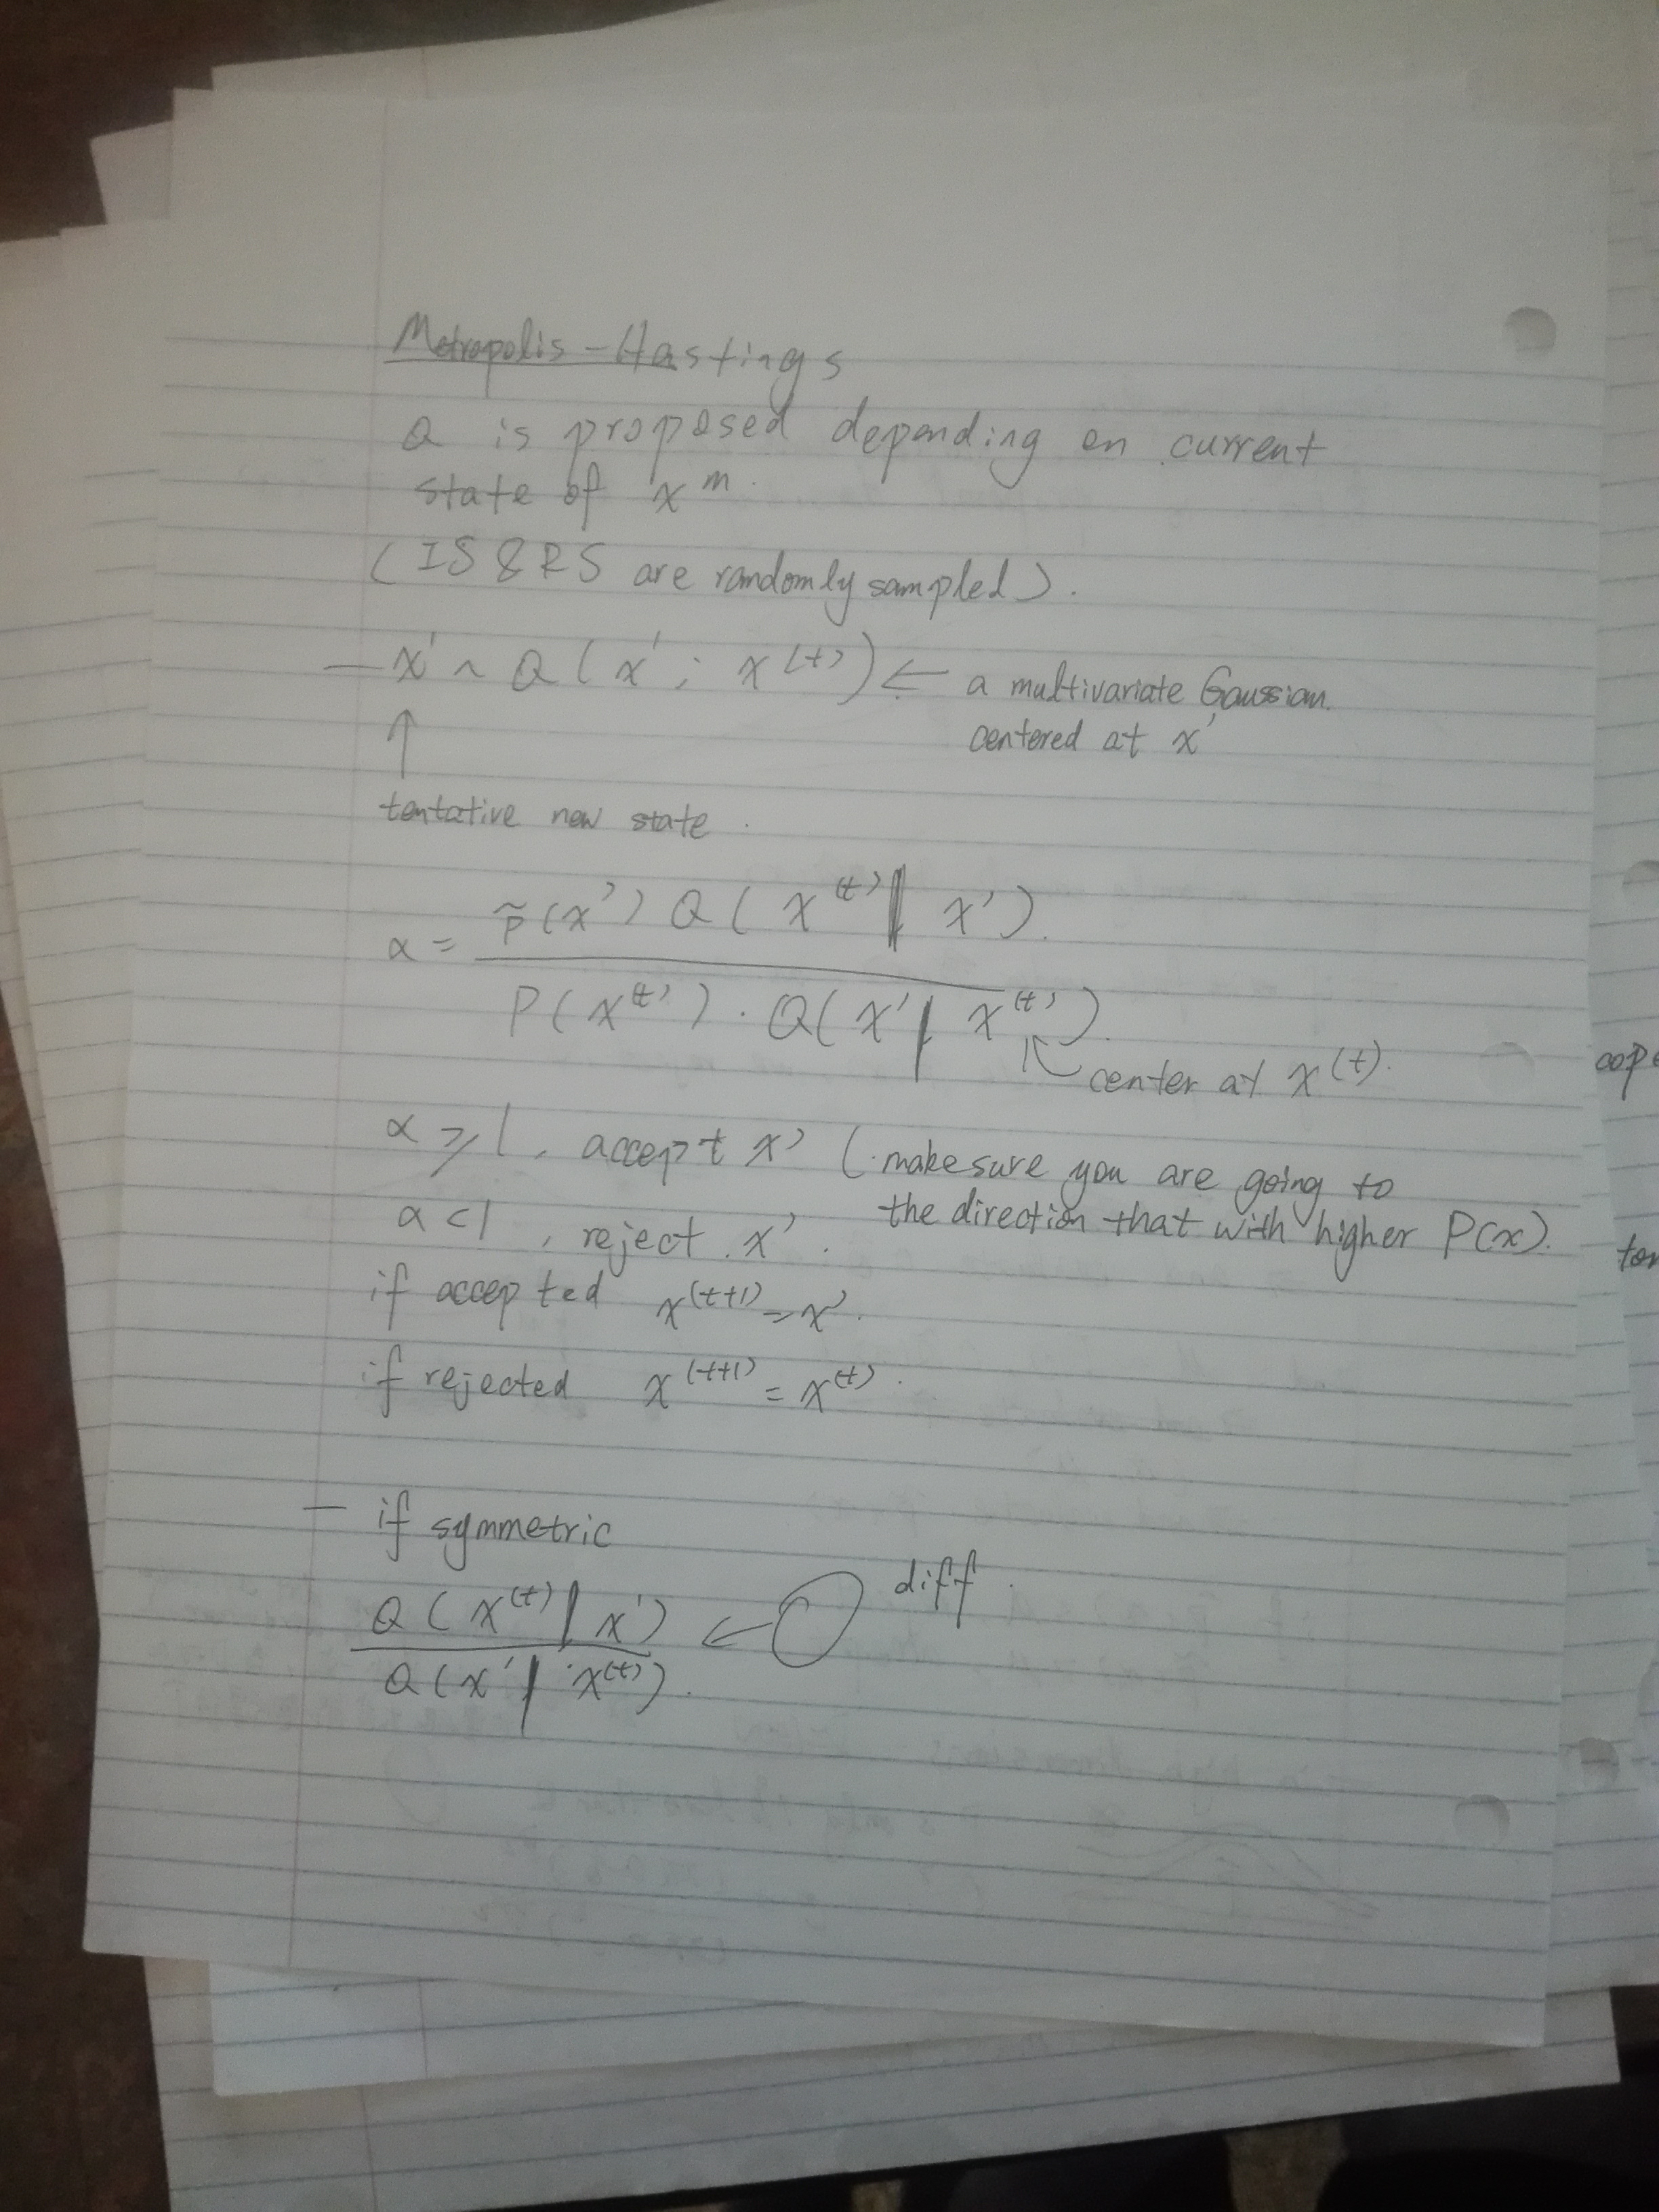 Metropolis-Hastings
Q is proposed depending on current
state of x^m.
(IS & RS are randomly sampled).
— x' ~ Q(x'; x^(t)) ← a multivariate Gaussian.
centered at x'
↑
tentative new state.
α = p̃(x') Q(x^(t) | x').
P(x^(t)) · Q(x' | x^(t)).
center at x^(t).
α ⩾ 1, accept x' (make sure you are going to
the direction that with higher P(x).
α < 1, reject x'.
if accepted x^(t+1) = x'.
if rejected x^(t+1) = x^(t).
— if symmetric
Q(x^(t) | x') ← diff.
Q(x' | x^(t)).